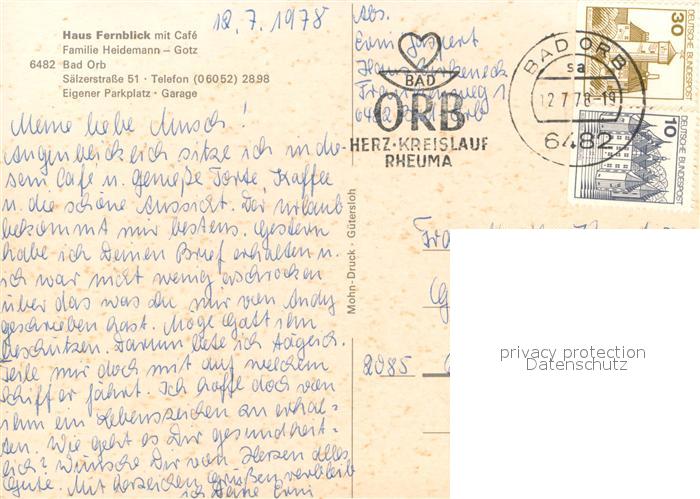 Haus Fernblick mit Café
Familie Heidemann – Gotz
6482 Bad Orb
Sälzerstraße 51 · Telefon (06052) 2898
Eigener Parkplatz · Garage
12.7.1978
Meine liebe Musch!
Augenblicklich sitze ich in die-
sem Café u. genieße Torte, Kaffee
u. die schöne Aussicht. Der Urlaub
bekommt mir bestens. Gestern
habe ich Deinen Brief erhalten u.
ich war nicht wenig erschrocken
über das was Du mir von Andy
geschrieben hast. Möge Gott ihn
beschützen. Darum bete ich täglich.
Teile mir doch mit auf welchem
Schiff er fährt. Ich hoffe doch von
ihm ein Lebenszeichen zu erhal-
ten. Wie geht es Dir gesundheit-
lich? Wünsche Dir von Herzen alles
Gute. Mit herzlichen Grüßen verbleibe
ich Deine Erni
Mohn-Druck · Gütersloh
Abs.
Erni
Haus
6482 Bad Orb
BAD
ORB
HERZ·KREISLAUF
RHEUMA
BAD ORB
sa
12.7.78-19
6482
30
DEUTSCHE BUNDESPOST
10
DEUTSCHE BUNDESPOST
2085
privacy protection
Datenschutz